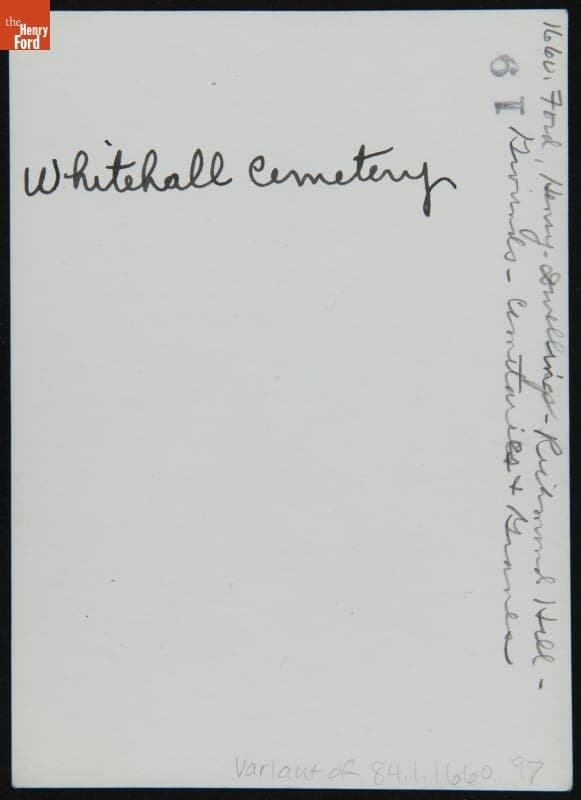 the
Henry
Ford
Whitehall Cemetery
1660. Ford, Henry - Dwellings - Richmond Hill -
Grounds - Cemetaries + Graves
61
Variant of 84.1.1660.97